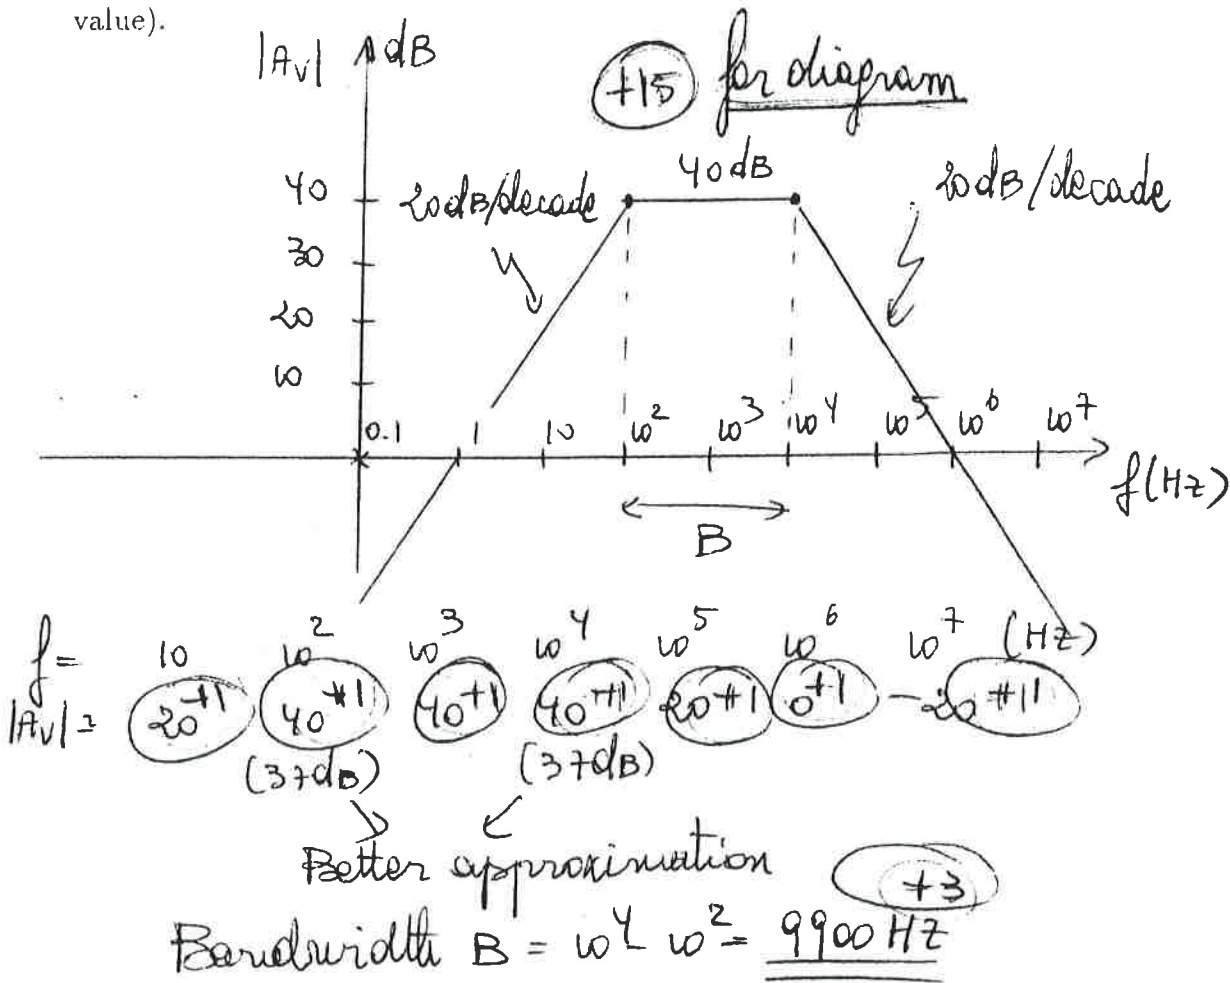 value).
|Av| dB
+15 for diagram
40 dB
40 20dB/decade 20dB/decade
30
20
10
0.1 1 10 10² 10³ 10⁴ 10⁵ 10⁶ 10⁷
f(Hz)
B
f= 10 10² 10³ 10⁴ 10⁵ 10⁶ 10⁷ (Hz)
|Av|= 20 +1 40 +1 40 +1 40 +1 20 +1 0 +1 -20 +1
(37dB) (37dB)
Better approximation
+3
Bandwidth B = 10⁴ - 10² = 9900 Hz